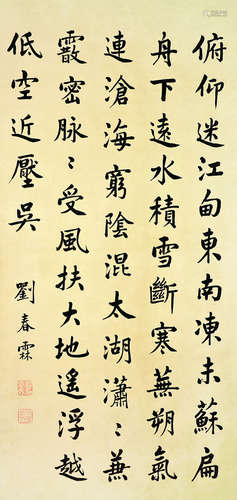 俯仰迷江甸東南凍未蘇扁
舟下遠水積雪斷寒蕪朔氣
連滄海窮陰混太湖瀟〻兼
霰密脉〻受風扶大地遙浮越
低空近壓吳
劉春霖